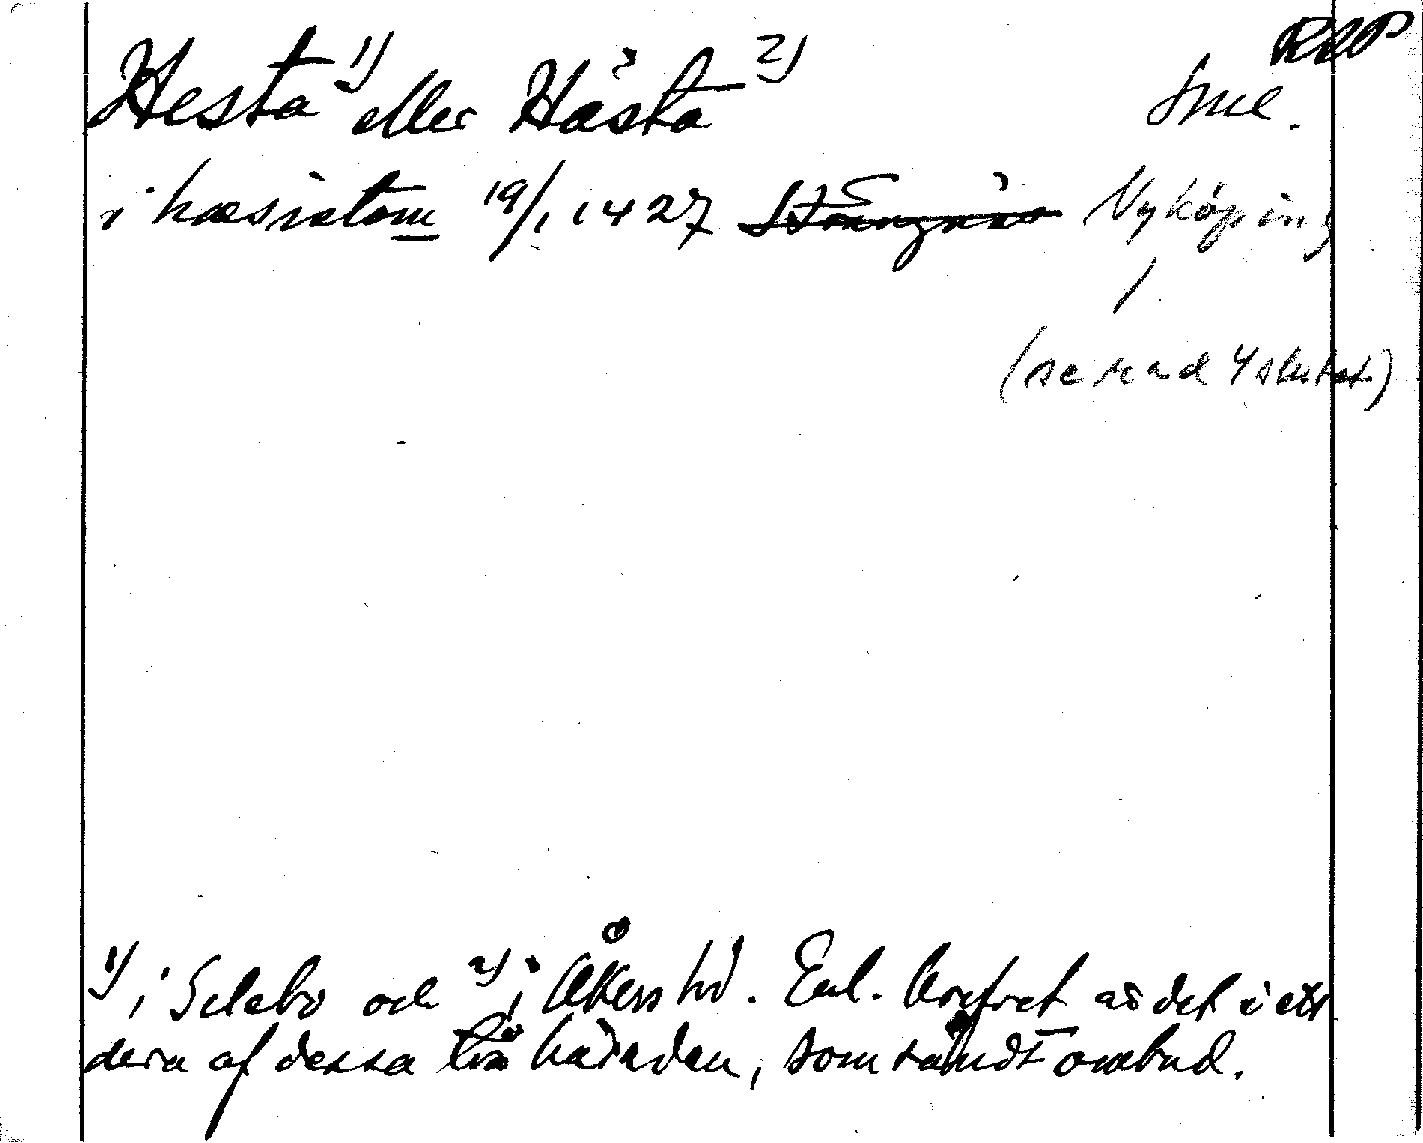 RAP
Hesta 1) eller Hästa 2) Sml.
i hæsistom 19/1 1427 Strängnäs Nyköping
/
(se rad 4 slutet)
1) i Selebo och 2) i Åkers hd. Enl. brefvet är det i ett
dera af dessa två häraden, som sändt ombud.